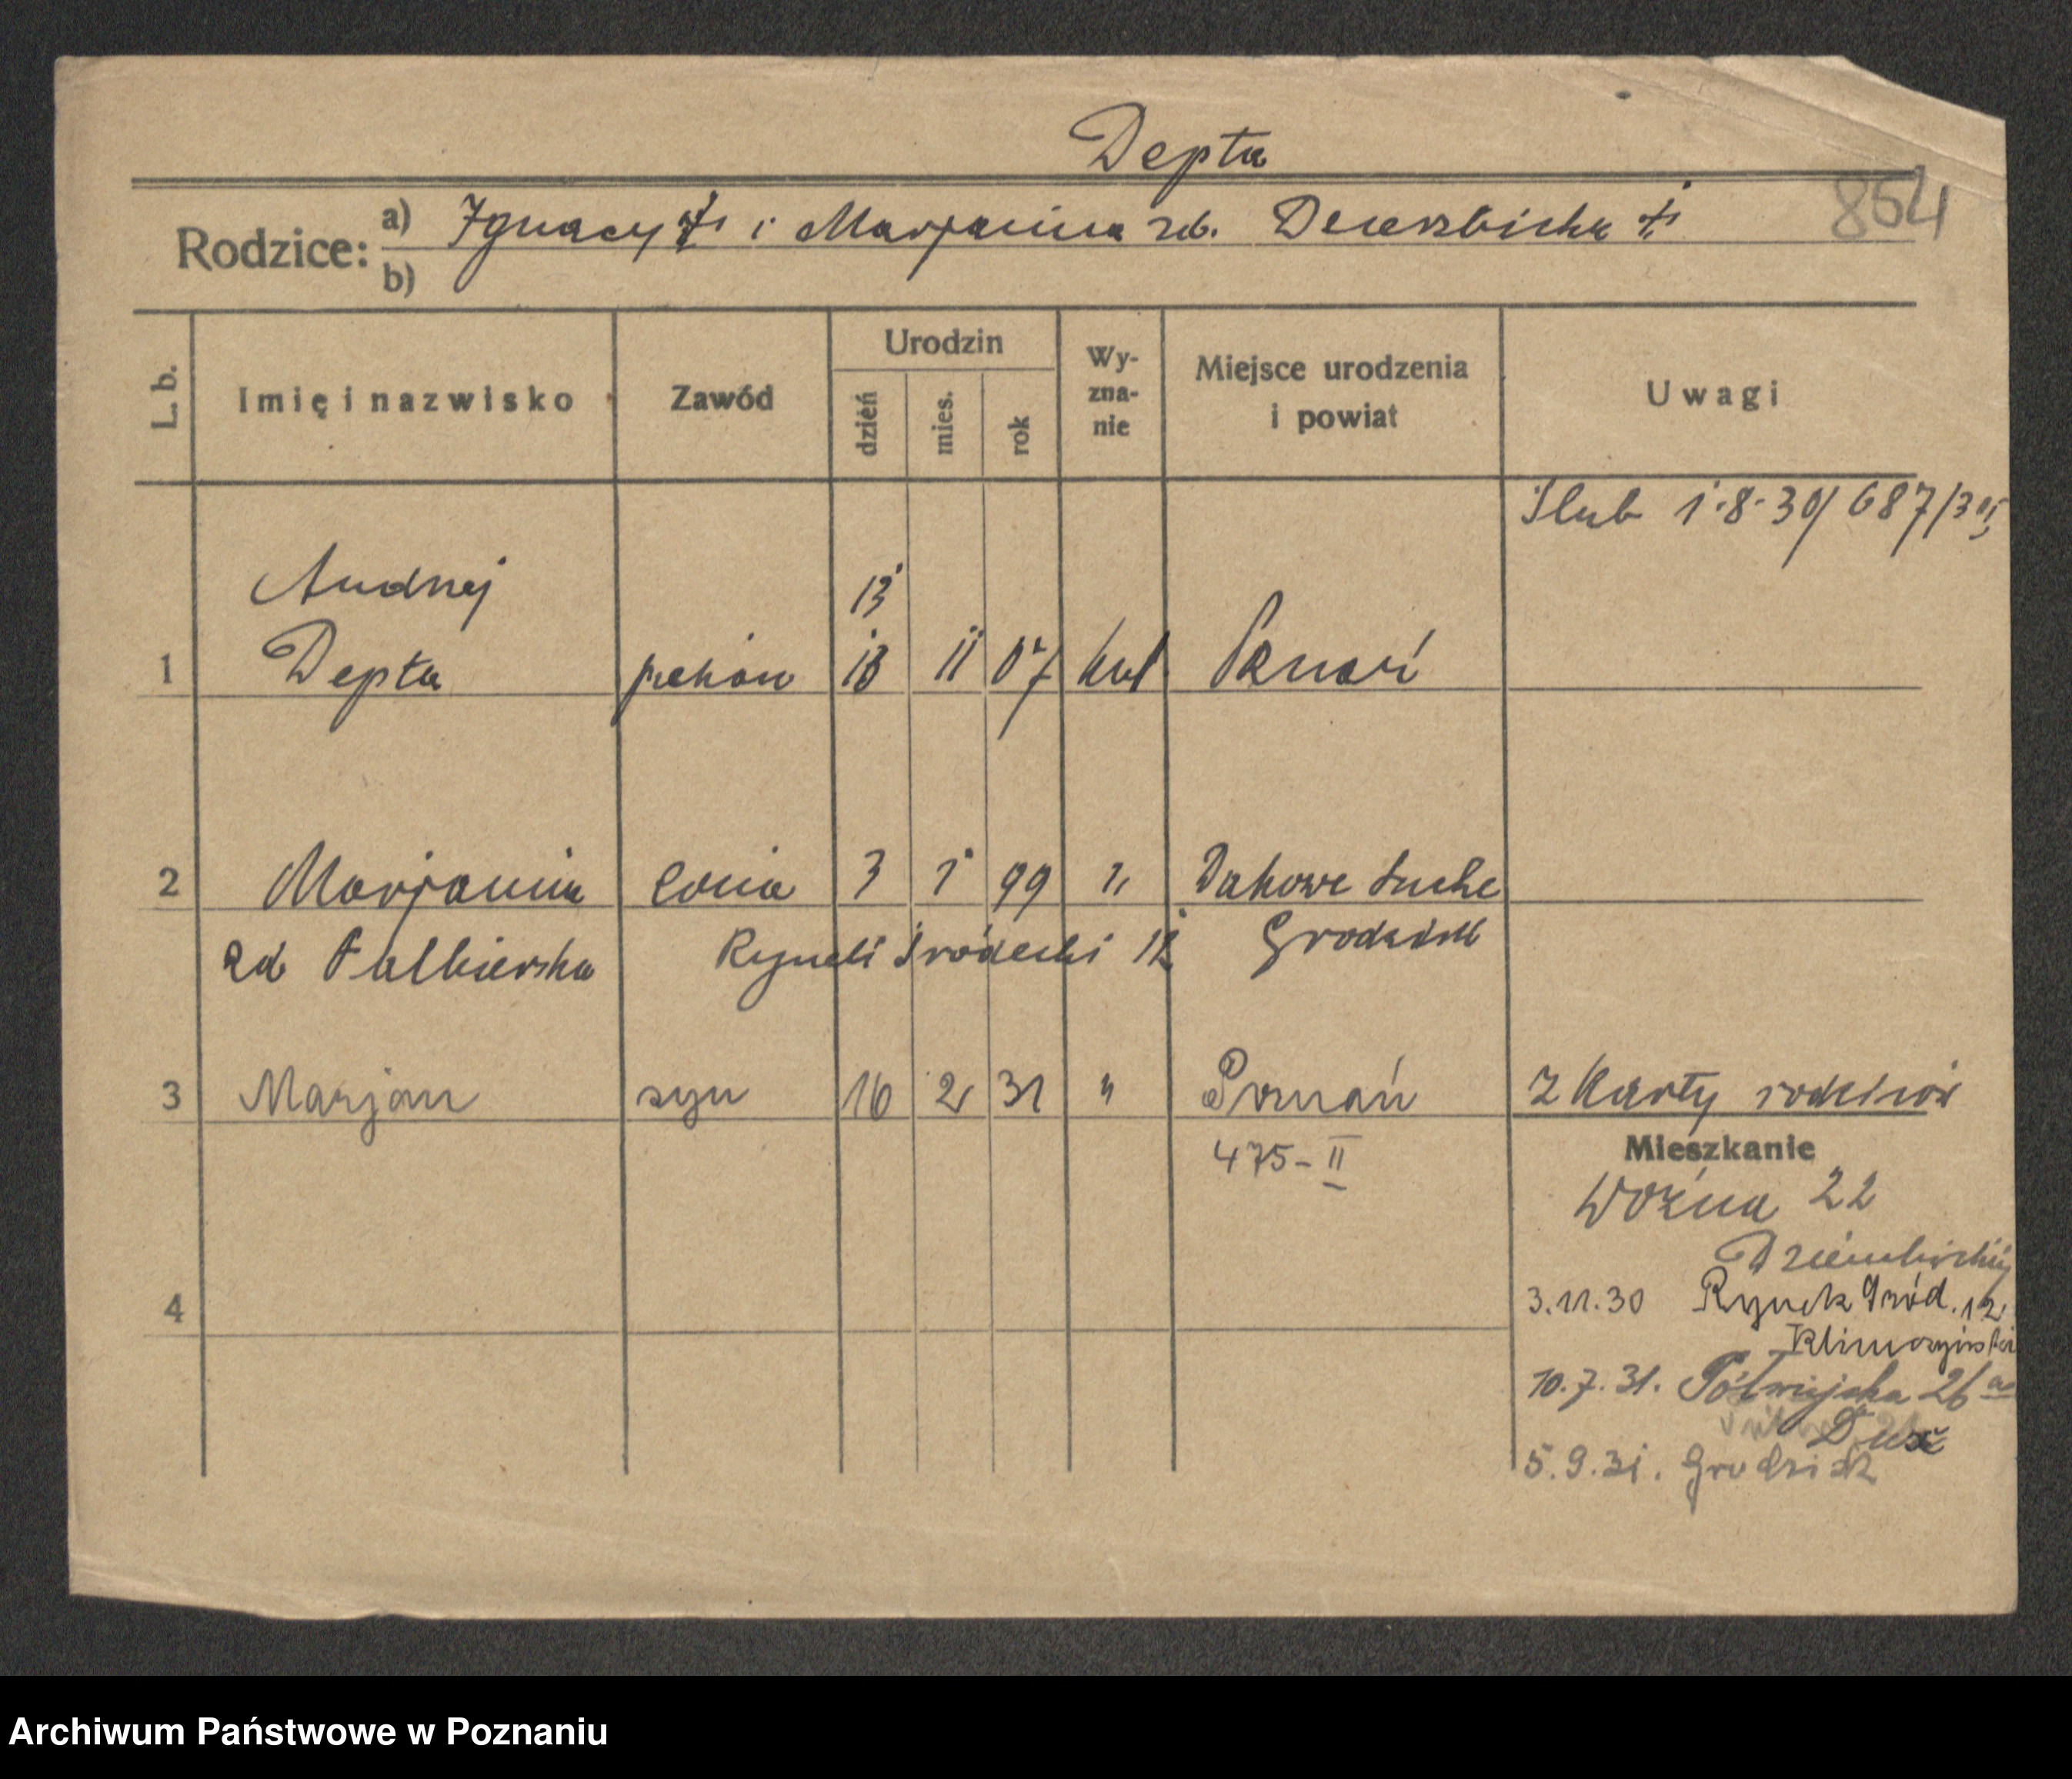 Depta
854
Rodzice: a) Ignacy i Marjanna zd.
b)
L. b. Imię i nazwisko Zawód Urodzin dzień mies. rok Wy-zna-nie Miejsce urodzenia i powiat Uwagi
Ślub 1.8.30/687/30
Andrzej 13
1 Depta 13 11 07 kat. Poznań
2 Marjanna żona 3 1 99 " Dakowe Suche
zd Rynek Śródecki 12 Grodzisk
3 Marjan syn 16 2 31 " Poznań Z Karty rodziców
475-II
Mieszkanie
Woźna 22
4
3.11.30 Rynek Śród. 12
10.7.31. Półwiejska 26
5.9.31. Grodzisk
Archiwum Państwowe w Poznaniu